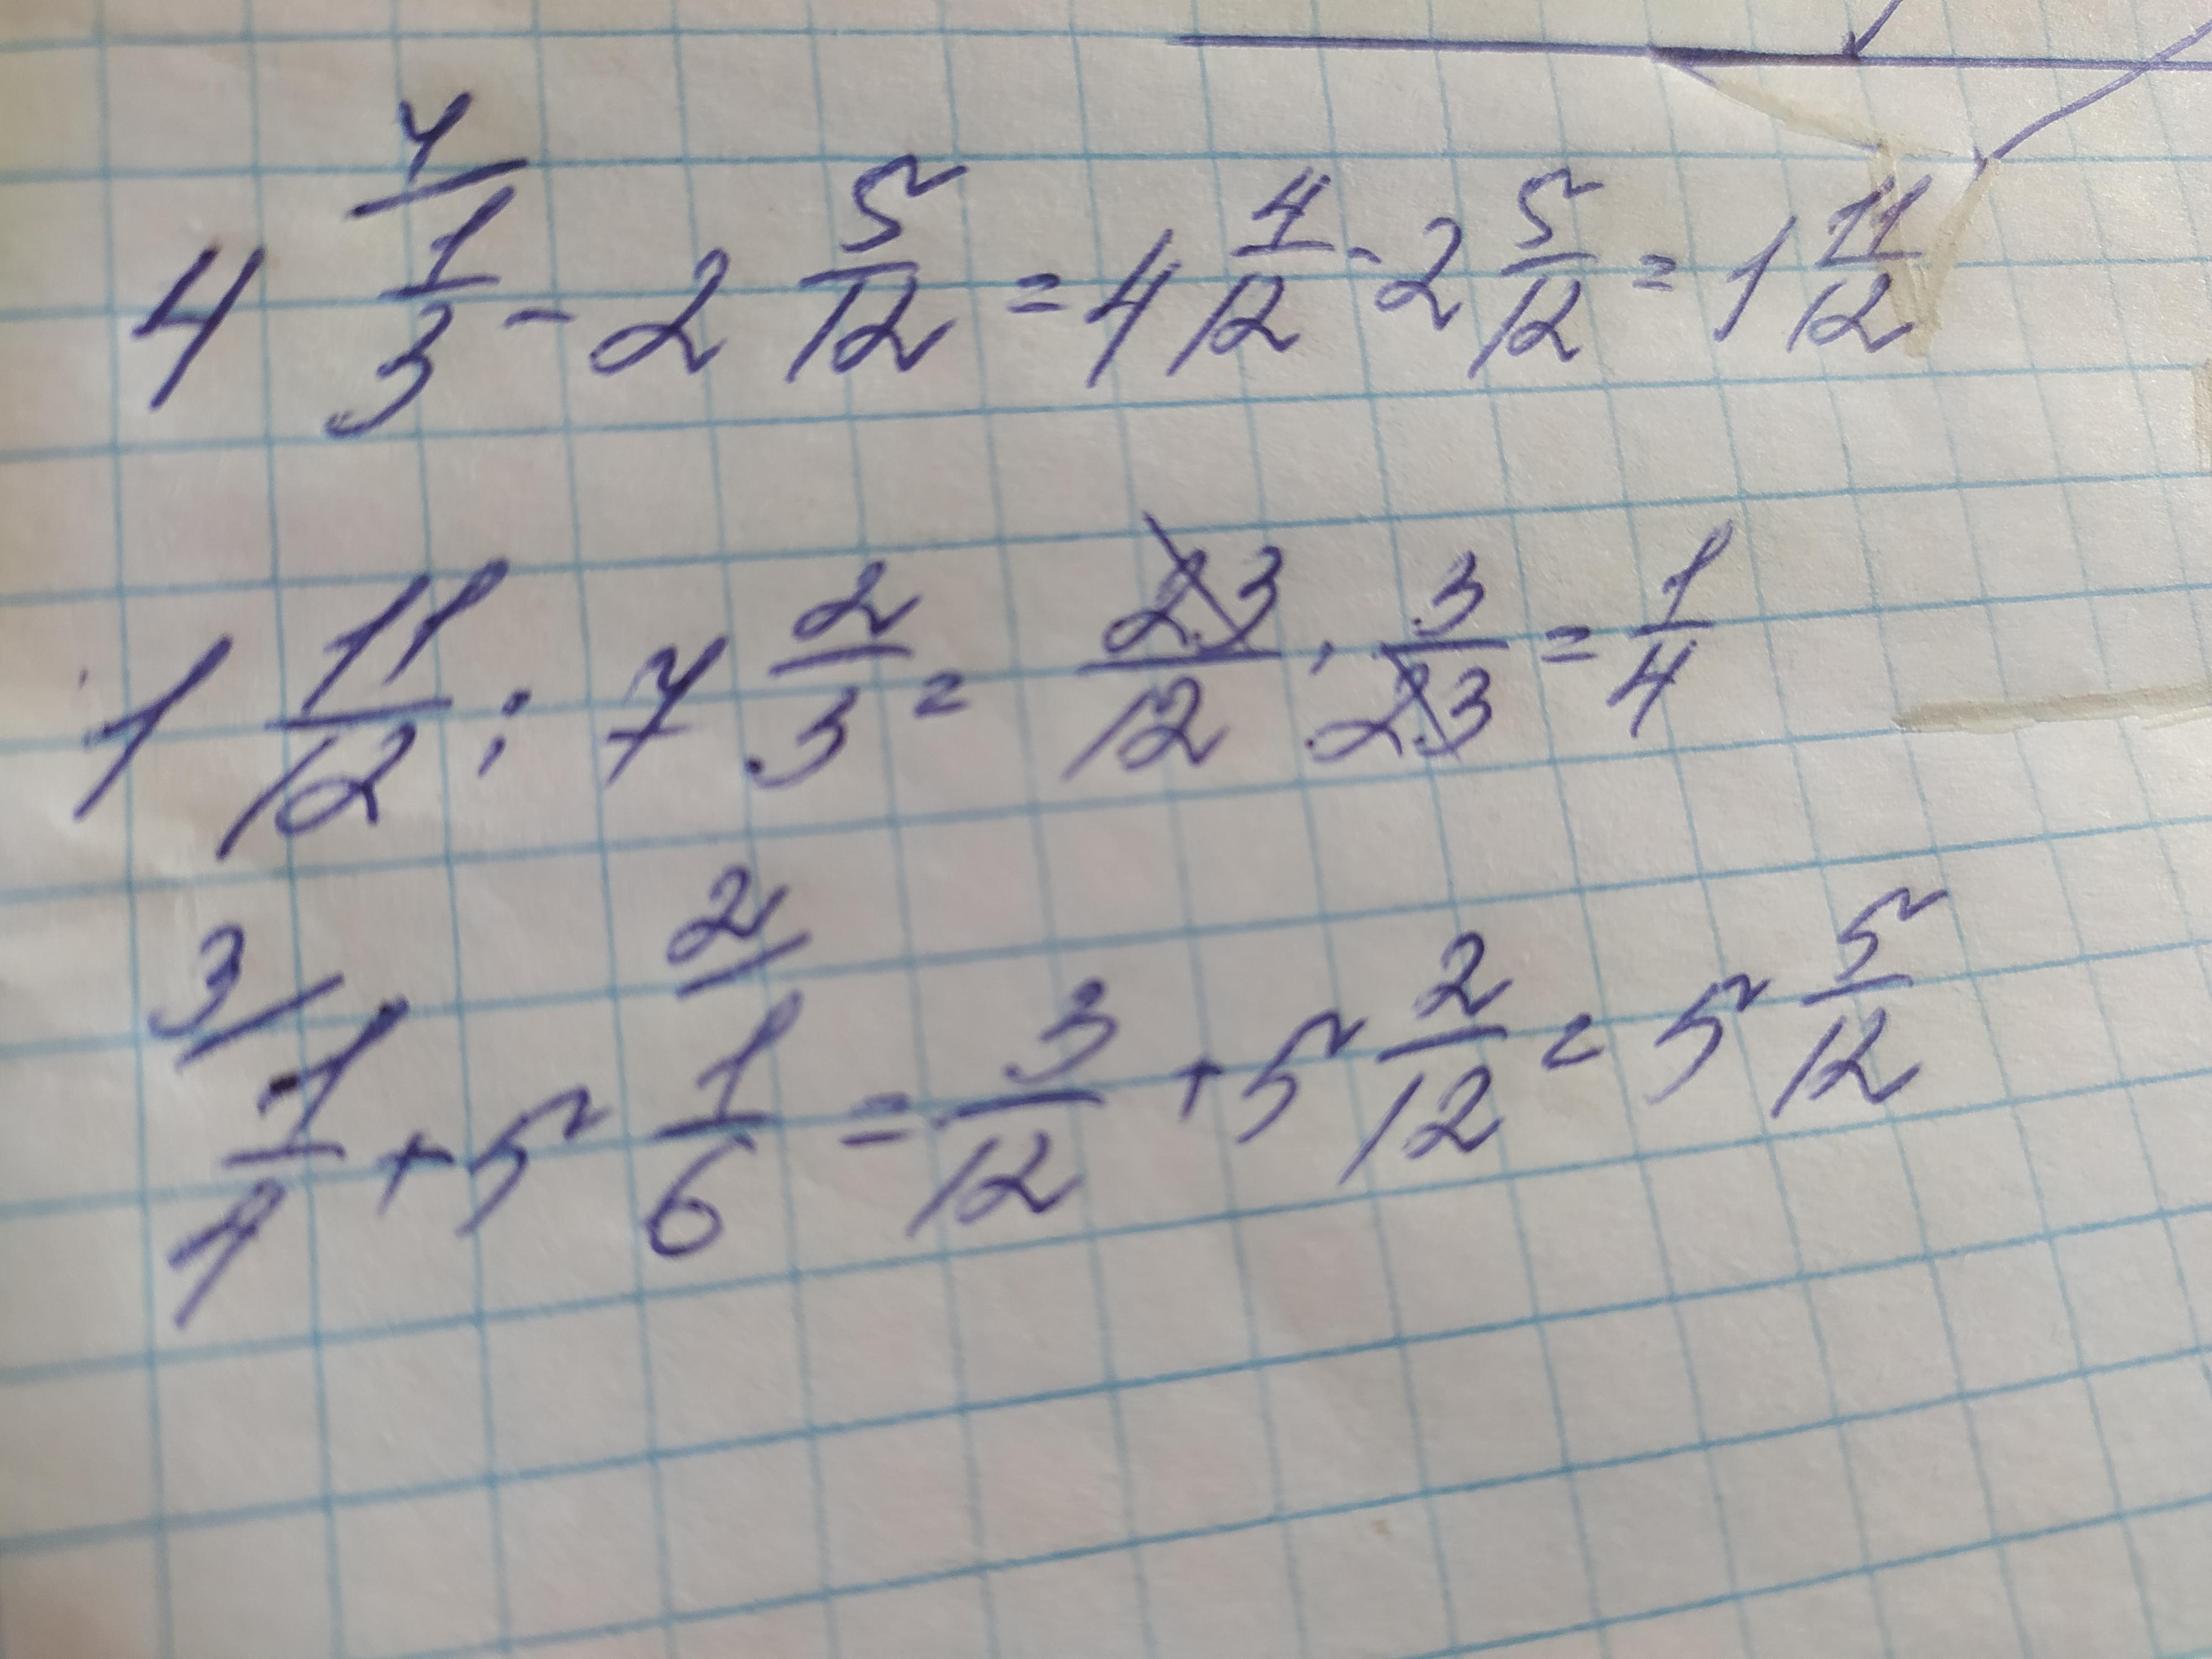 4 4/ 1/3 - 2 5/12 = 4 4/12 - 2 5/12 = 1 11/12
1 11/12 : 7 2/3 = 23/12 · 3/23 = 1/4
3/ 1/4 + 5 2/ 1/6 = 3/12 + 5 2/12 = 5 5/12